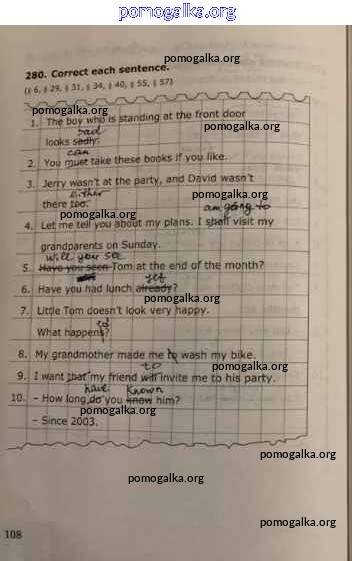 http://pomogalka.org
pomogalka.org
280. Correct each sentence.
(§ 6, § 29, § 31, § 34, § 40, § 55, § 57)
pomogalka.org
1. The boy who is standing at the front door
pomogalka.org
sad
looks sadly.
can
2. You must take these books if you like.
pomogalka.org
3. Jerry wasn't at the party, and David wasn't
pomogalka.org
either
there too.
am going to
4. Let me tell you about my plans. I shall visit my
pomogalka.org
grandparents on Sunday.
will you see
5. Have you seen Tom at the end of the month?
yet
6. Have you had lunch already?
pomogalka.org
7. Little Tom doesn't look very happy.
pomogalka.org
ed
What happens?
8. My grandmother made me to wash my bike.
to
9. I want that my friend will invite me to his party.
have known
10. – How long do you know him?
pomogalka.org
– Since 2003.
pomogalka.org
pomogalka.org
pomogalka.org
108